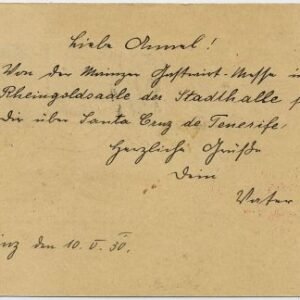 Liebe Annel!
Von der Mainzer Gastwirt-Messe i
Rheingoldsaale der Stadthalle
Dir über Santa Cruz de Tenerife,
Herzliche Grüße
Dein
Vater
nz den 10. V. 30.